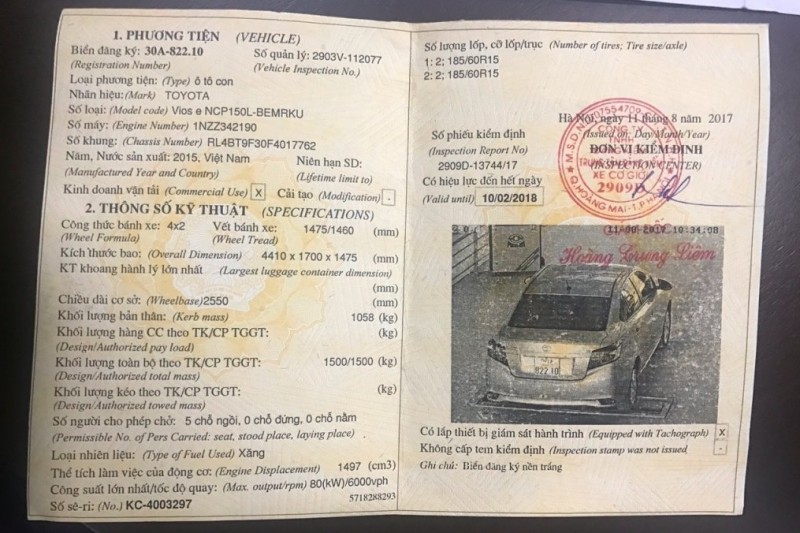 1. PHƯƠNG TIỆN (VEHICLE)
Biển đăng ký: 30A-822.10 Số quản lý: 2903V-112077
(Registration Number) (Vehicle Inspection No.)
Loại phương tiện: (Type) ô tô con
Nhãn hiệu: (Mark) TOYOTA
Số loại: (Model code) Vios e NCP150L-BEMRKU
Số máy: (Engine Number) 1NZZ342190
Số khung: (Chassis Number) RL4BT9F30F4017762
Năm, Nước sản xuất: 2015, Việt Nam Niên hạn SD:
(Manufactured Year and Country) (Lifetime limit to)
Kinh doanh vận tải (Commercial Use) X Cải tạo (Modification) -
2. THÔNG SỐ KỸ THUẬT (SPECIFICATIONS)
Công thức bánh xe: 4x2 Vết bánh xe: 1475/1460 (mm)
(Wheel Formula) (Wheel Tread)
Kích thước bao: (Overall Dimension) 4410 x 1700 x 1475 (mm)
KT khoang hành lý lớn nhất (Largest luggage container dimension)
(mm)
Chiều dài cơ sở: (Wheelbase) 2550 (mm)
Khối lượng bản thân: (Kerb mass) 1058 (kg)
Khối lượng hàng CC theo TK/CP TGGT: (kg)
(Design/Authorized pay load)
Khối lượng toàn bộ theo TK/CP TGGT: 1500/1500 (kg)
(Design/Authorized total mass)
Khối lượng kéo theo TK/CP TGGT: (kg)
(Design/Authorized towed mass)
Số người cho phép chở: 5 chỗ ngồi, 0 chỗ đứng, 0 chỗ nằm
(Permissible No. of Pers Carried: seat, stood place, laying place)
Loại nhiên liệu: (Type of Fuel Used) Xăng
Thể tích làm việc của động cơ: (Engine Displacement) 1497 (cm3)
Công suất lớn nhất/tốc độ quay: (Max. output/rpm) 80(kW)/6000vph
5718288293
Số sê-ri: (No.) KC-4003297
Số lượng lốp, cỡ lốp/trục (Number of tires; Tire size/axle)
1: 2; 185/60R15
2: 2; 185/60R15
Hà Nội, ngày 11 tháng 8 năm 2017
(Issued on: Day/Month/Year)
Số phiếu kiểm định ĐƠN VỊ KIỂM ĐỊNH
(Inspection Report No) (INSPECTION CENTER)
2909D-13744/17
XE CƠ GIỚI
2909D
Q.HOÀNG MAI-T.P HÀ NỘI
Có hiệu lực đến hết ngày
(Valid until) 10/02/2018
10:34:08
Hoàng Trung Liêm
822.10
Có lắp thiết bị giám sát hành trình (Equipped with Tachograph) X
Không cấp tem kiểm định (Inspection stamp was not issued) -
Ghi chú: Biển đăng ký nền trắng